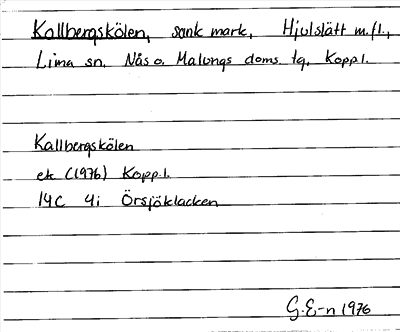 Kallbergskölen, sank mark, Hjulslätt m.fl.,
Lima sn, Nås o. Malungs doms. tg, Koppl.
Kallbergskölen
ek (1976) Koppl.
14C 4i Örsjöklacken
G.E-n 1976